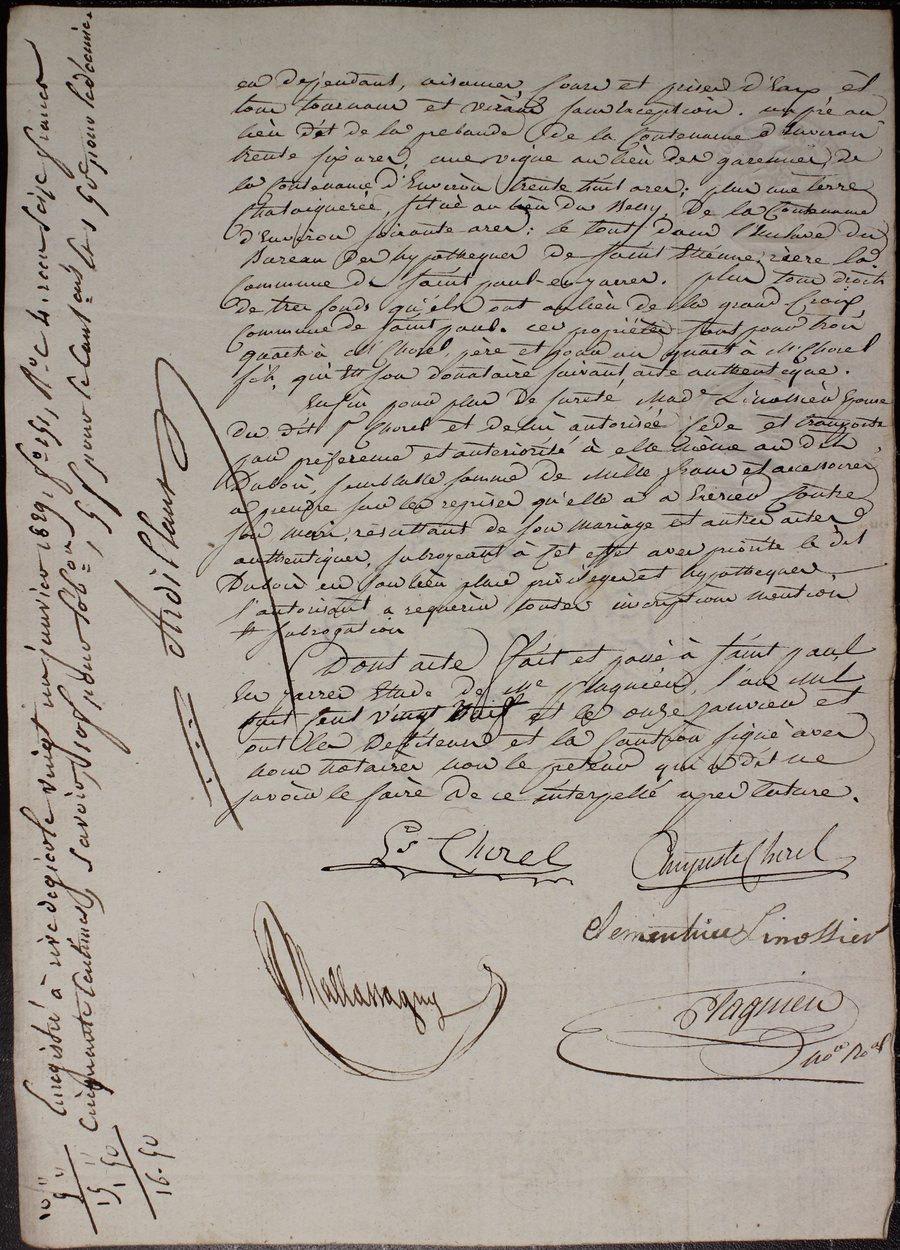 en dépendant, aisances, cours et prises d'Eaux et
tout tournant et virant sans Exception. un pré au
lieu dit de la prebande de la Contenance d'Environ
trente six ares, une vigne au lieu des garennes, de
la Contenance d'Environ trente huit ares; plus une terre
Chataignerée, située au lieu du Bessy, De la Contenance
d'Environ soixante ares; le tout dans l'arrondissement du
Bureau des hypotheques de Saint Etienne, rière la
Commune de Saint paul-en-jarrez. plus tous droits
de tres fonds qu'ils ont au lieu de la grand Croix
Commune de Saint paul. ces propriétés sont pour trois
quarts à M. Chorel père et pour un quart à Mr Chorel
fils, qui est son donataire suivant acte authentique.
Enfin pour plus De sureté Made Linossier Epouse
du dit Sr Chorel et de lui autorisée Cede et transporte
par preference et anteriorité à elle même au dit
Dubois, semblable somme de Mille francs et accessoires
à prendre sur les reprises qu'elle a à Exercer Contre
son Mari, résultant de son Mariage et autres actes
authentiques, subrogeant a Cet effet avec priorité le dit
Dubois en son lieu place privileges et hypotheques,
l'autorisant a requerir toutes inscriptions mention
et subrogation
Dont acte fait et passé à Saint paul
En jarrez Etude de Me Plagnieu, l'an mil
huit Cent vingt neuf et le onze janvier et
ont les Debiteurs et la Caution signé avec
nous notaires non le preteur qui a dit ne
savoir le faire De ce interpellé après lecture.
Chorel
Auguste Chorel
Clementine Linossier
Mallassagny
Plagnieu
nore Roal
Enregistré à rive de gier le vingt un janvier 1829, fo 151, Ro C 4. reçu seize francs
Cinquante Centimes, Savoir, 10f pour l'oblon, 5f pour le Cautt et 1f 50c pour le décime.
Ardillant
10 "
5 "
15 "
1-50
16-50